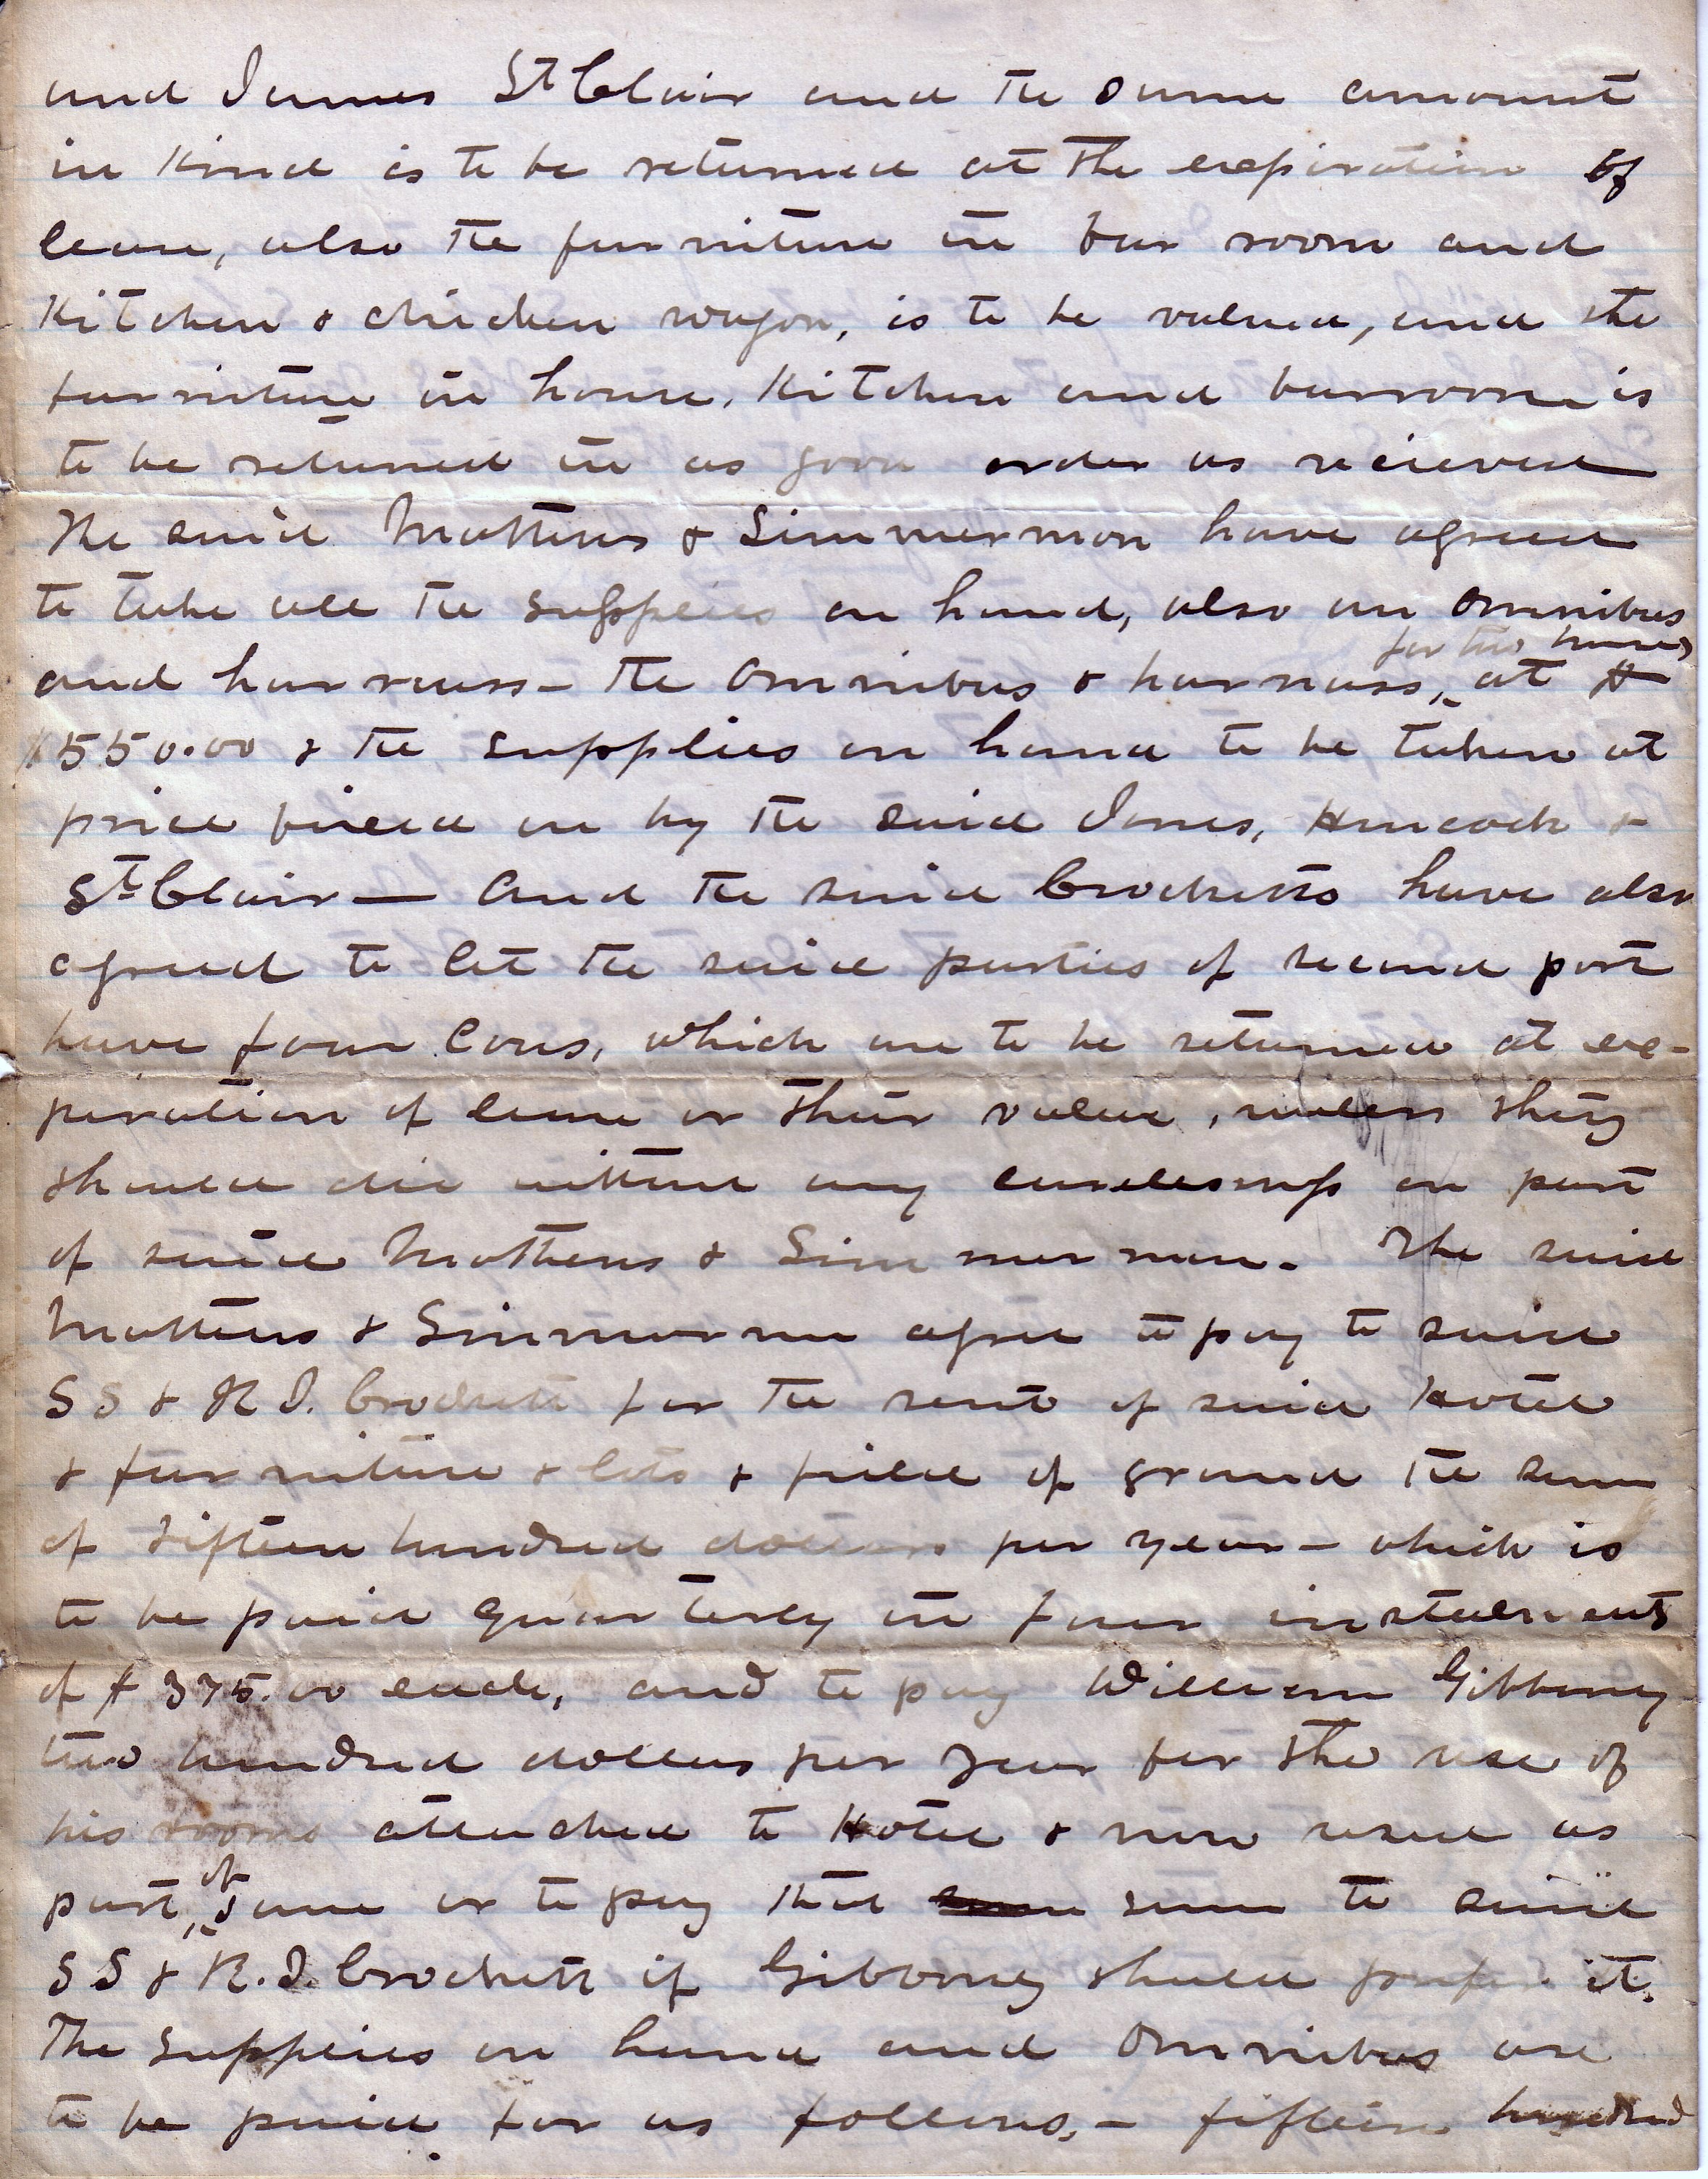 and James St Clair and the same amount
in Kind is to be returned at the expiration of
lease, also the furniture in bar room and
Kitchen & chicken wagon, is to be valued, and the
furniture in house, Kitchen and barroom is
to be returned in as good order as recieved
The said Mathews & Simmerman have agreed
to take all the supplies on hand, also an Omnibus
for two horses
and harness - the Omnibus & harness, at
$550.00 & the supplies on hand to be taken at
price fixed on by the said Jones, Hancock &
St Clair — And the said Crocketts have also
agreed to let the said parties of second part
have four Cows, which are to be returned at ex-
piration of lease or their value, unless they
should die without any carelessness on part
of said Mathews & Simmerman. The said
Mathews & Simmerman agree to pay to said
S S & R I. Crockett for the rent of said Hotel
& furniture & lots & field of ground the sum
of Fifteen hundred dollars per year - which is
to be paid Quarterly in four instalments
of $375.00 each, and to pay William Gibboney
two hundred dollars per year for the use of
his rooms attached to Hotel & now used as
of
part, same or to pay that sum to said
S S & R. I. Crockett if Gibboney should prefer it.
The supplies on hand and Omnibus are
to be paid for as follows, - fifteen hundred